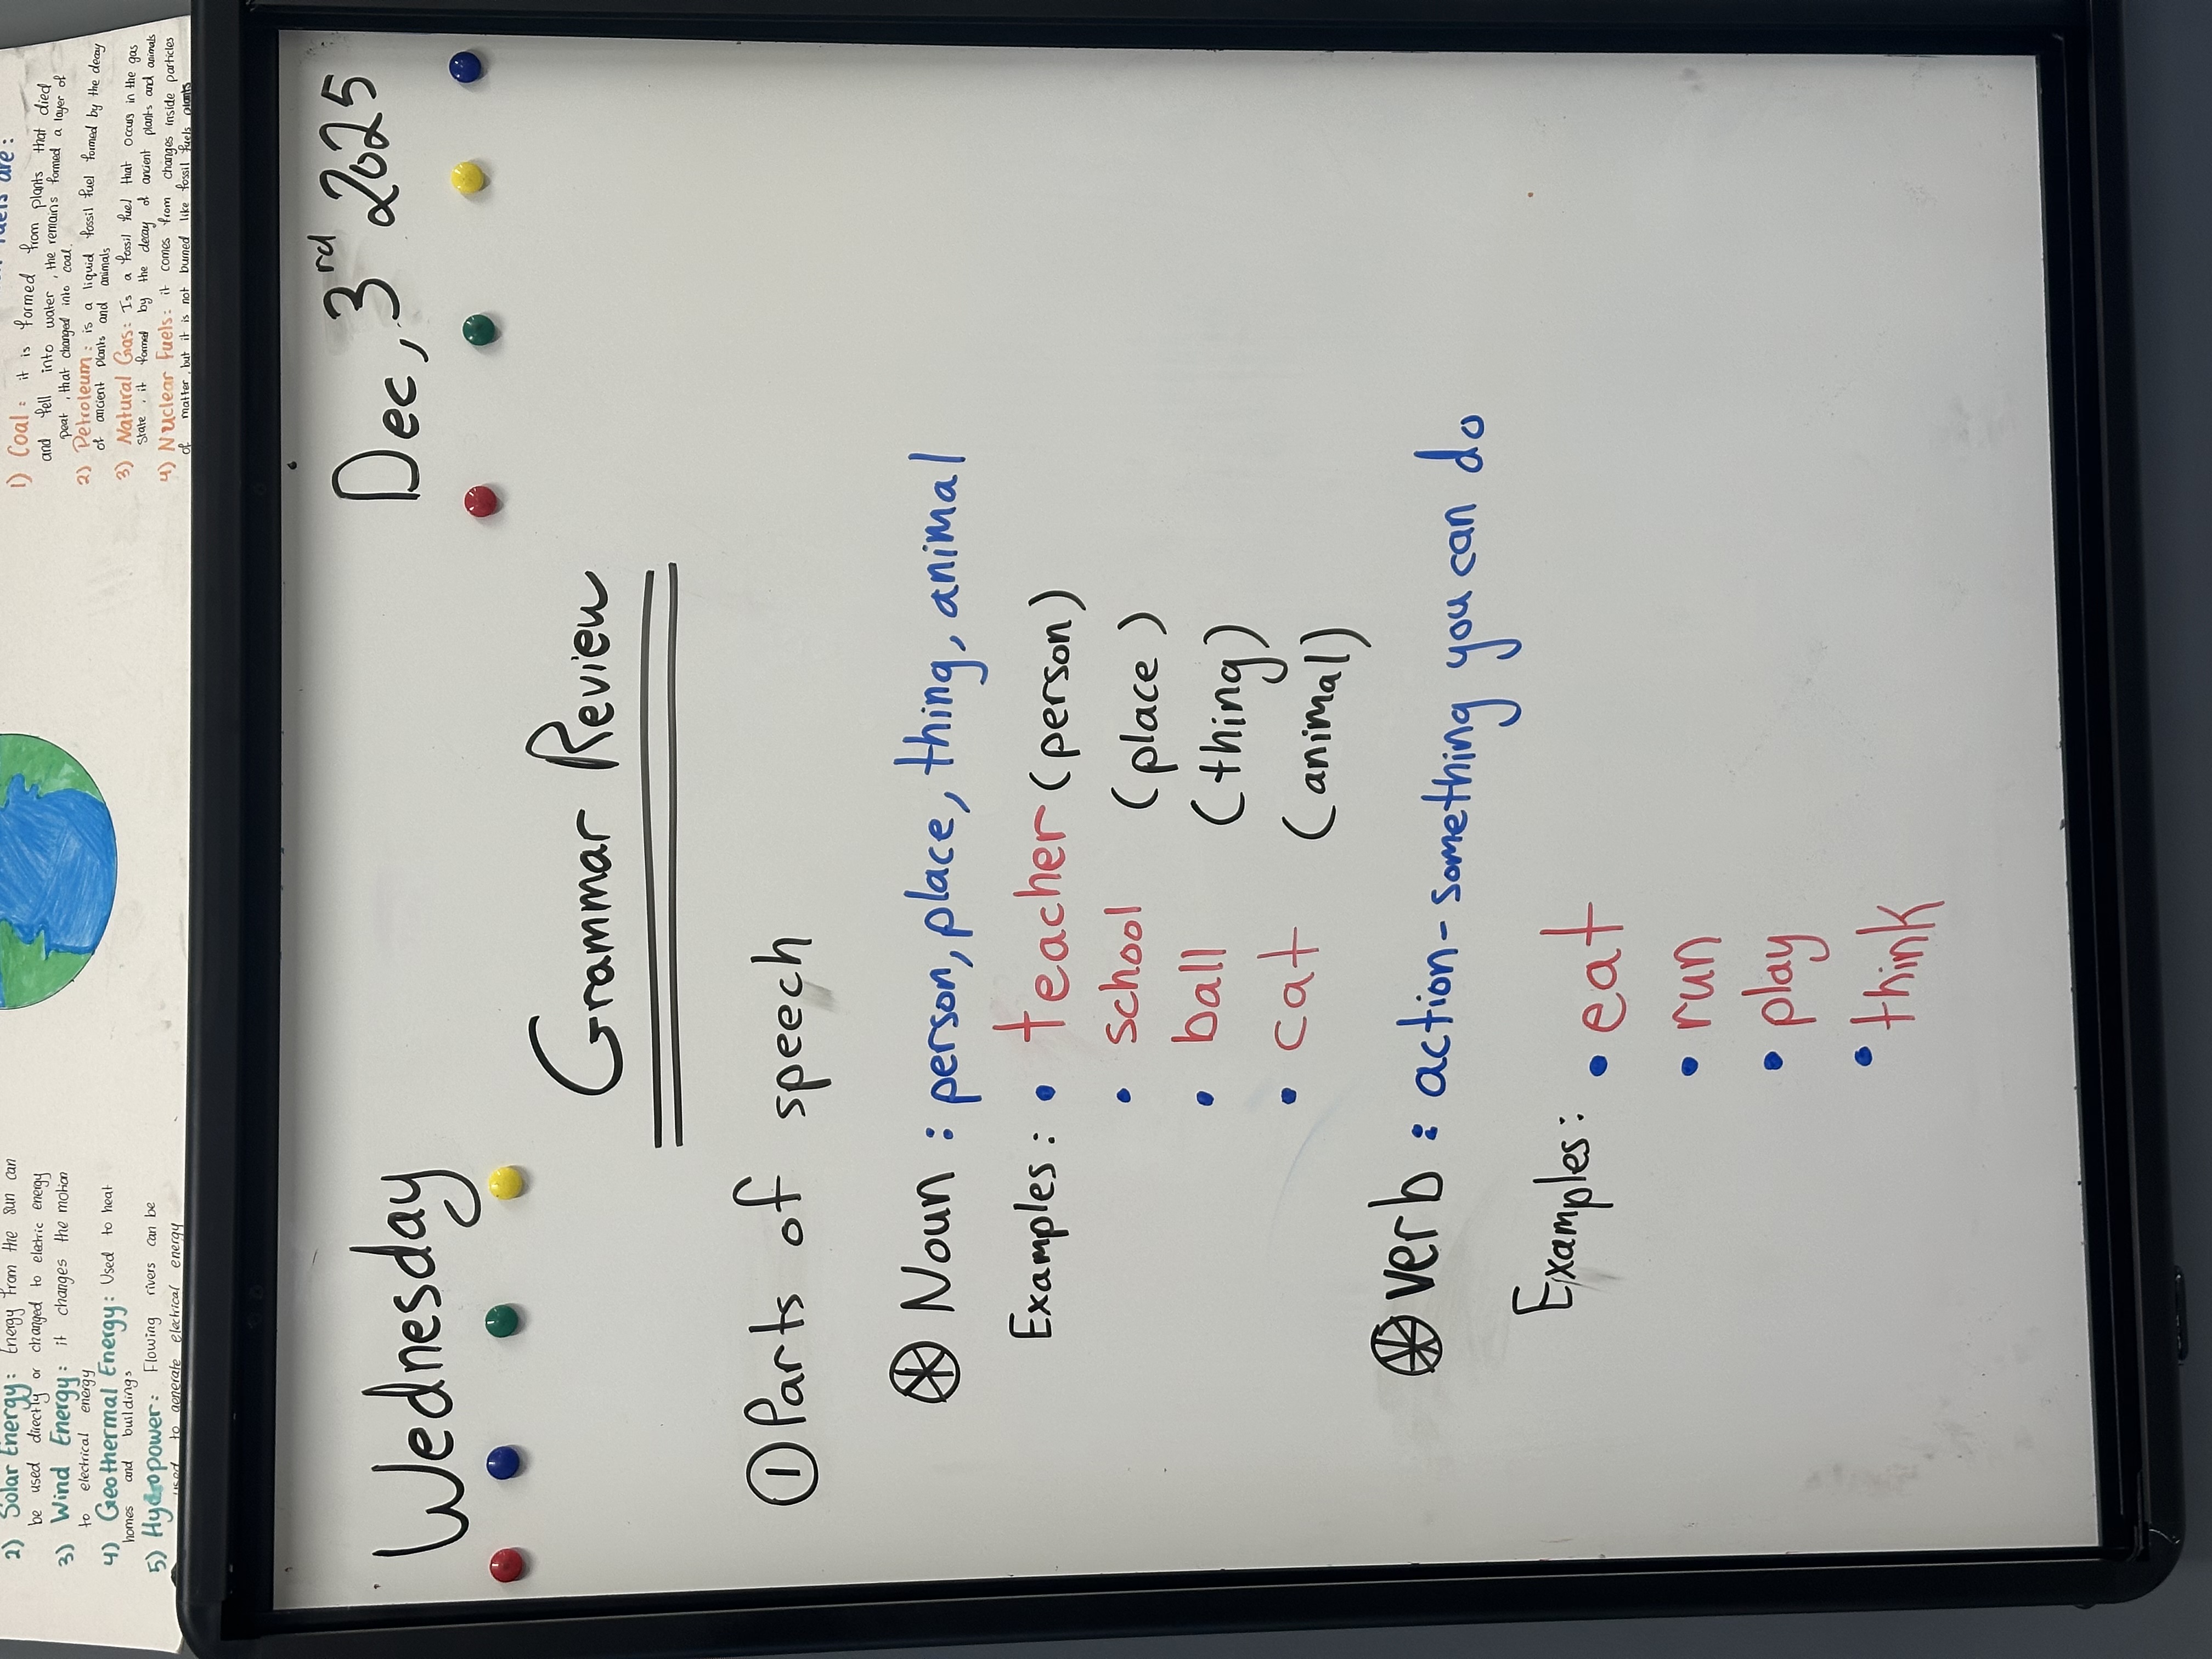 Wednesday
Dec, 3rd 2025
Grammar Review
① Parts of speech
Noun : person, place, thing, animal
Examples : • teacher (person)
• school (place)
• ball (thing)
• cat (animal)
verb : action - something you can do
Examples : • eat
• run
• play
• think
2) Solar Energy : Energy from the sun can
be used directly or changed to eletric energy
3) Wind Energy : it changes the motion
to electrical energy
4) Geothermal Energy : Used to heat
homes and buildings
5) Hydropower : Flowing rivers can be
used to generate electrical energy
fuels are :
1) Coal : it is formed from plants that died
and fell into water, the remains formed a layer of
peat, that changed into coal.
2) Petroleum : is a liquid fossil fuel formed by the decay
of ancient plants and animals
3) Natural Gas : Is a fossil fuel that occurs in the gas
state, it formed by the decay of ancient plants and animals
4) Nuclear Fuels : it comes from changes inside particles
of matter, but it is not burned like fossil fuels plants